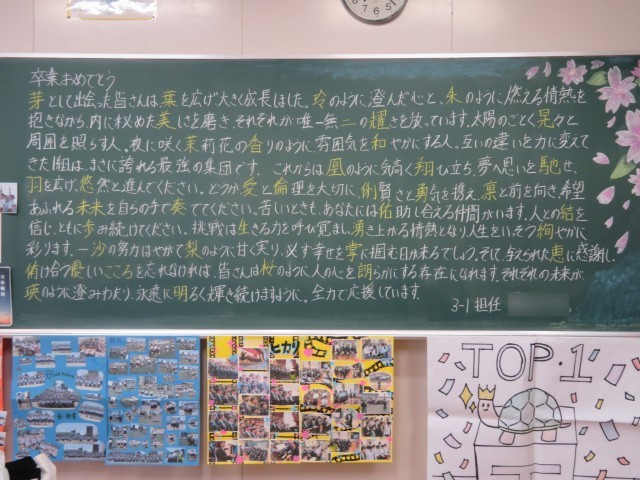 卒業おめでとう
芽として出会った皆さんは、葉を広げ大きく成長しました。玲のように澄んだ心と、朱のように燃える情熱を
抱きながら、内に秘めた美しさを磨き、それぞれが唯一無二の耀きを放っています。太陽のごとく晃々と
周囲を照らす人。夜に咲く茉莉花の香りのように雰囲気を和やかにする人。互いの違いを力に変えて
きた1組は、まさに誇れる最強の集団です。これからは凰のように気高く翔び立ち、夢へ思いを馳せ、
羽を広げ、悠然と進んでください。どうか愛と倫理を大切に、俐賢さと勇気を携え、凛と前を向き、希望
あふれる未来を自らの手で奏でてください。苦しいときも、あなたには佑助し合える仲間がいます。人との結を
信じ、ともに歩み続けてください。挑戦は生きる力を呼び覚まし、勇き上がる情熱となり人生をいっそう絢やかに
彩ります。一沙の努力はやがて梨のように甘く実り、必ず幸せを掌に掴む日が来るでしょう。そして、与えられた恵に感謝し、
侑け合う優しいこころを忘れなければ、皆さんは桜のように人の心を朗らかにする存在になれます。それぞれの未来が、
瑛のように澄みわたり、永遠に明るく輝き続けますように。全力で応援しています。
3-1 担任
TOP.1